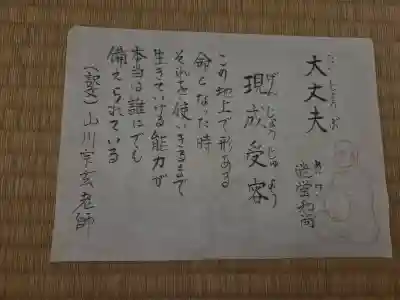 だいじょうぶ
大丈夫
げんじょうじゅよう
現成受容
和尚
この地上で形ある
命となった時
それを使いきるまで
生きていける能力が
本当は誰にでも
備えられている
(訳文)山川宗玄老師